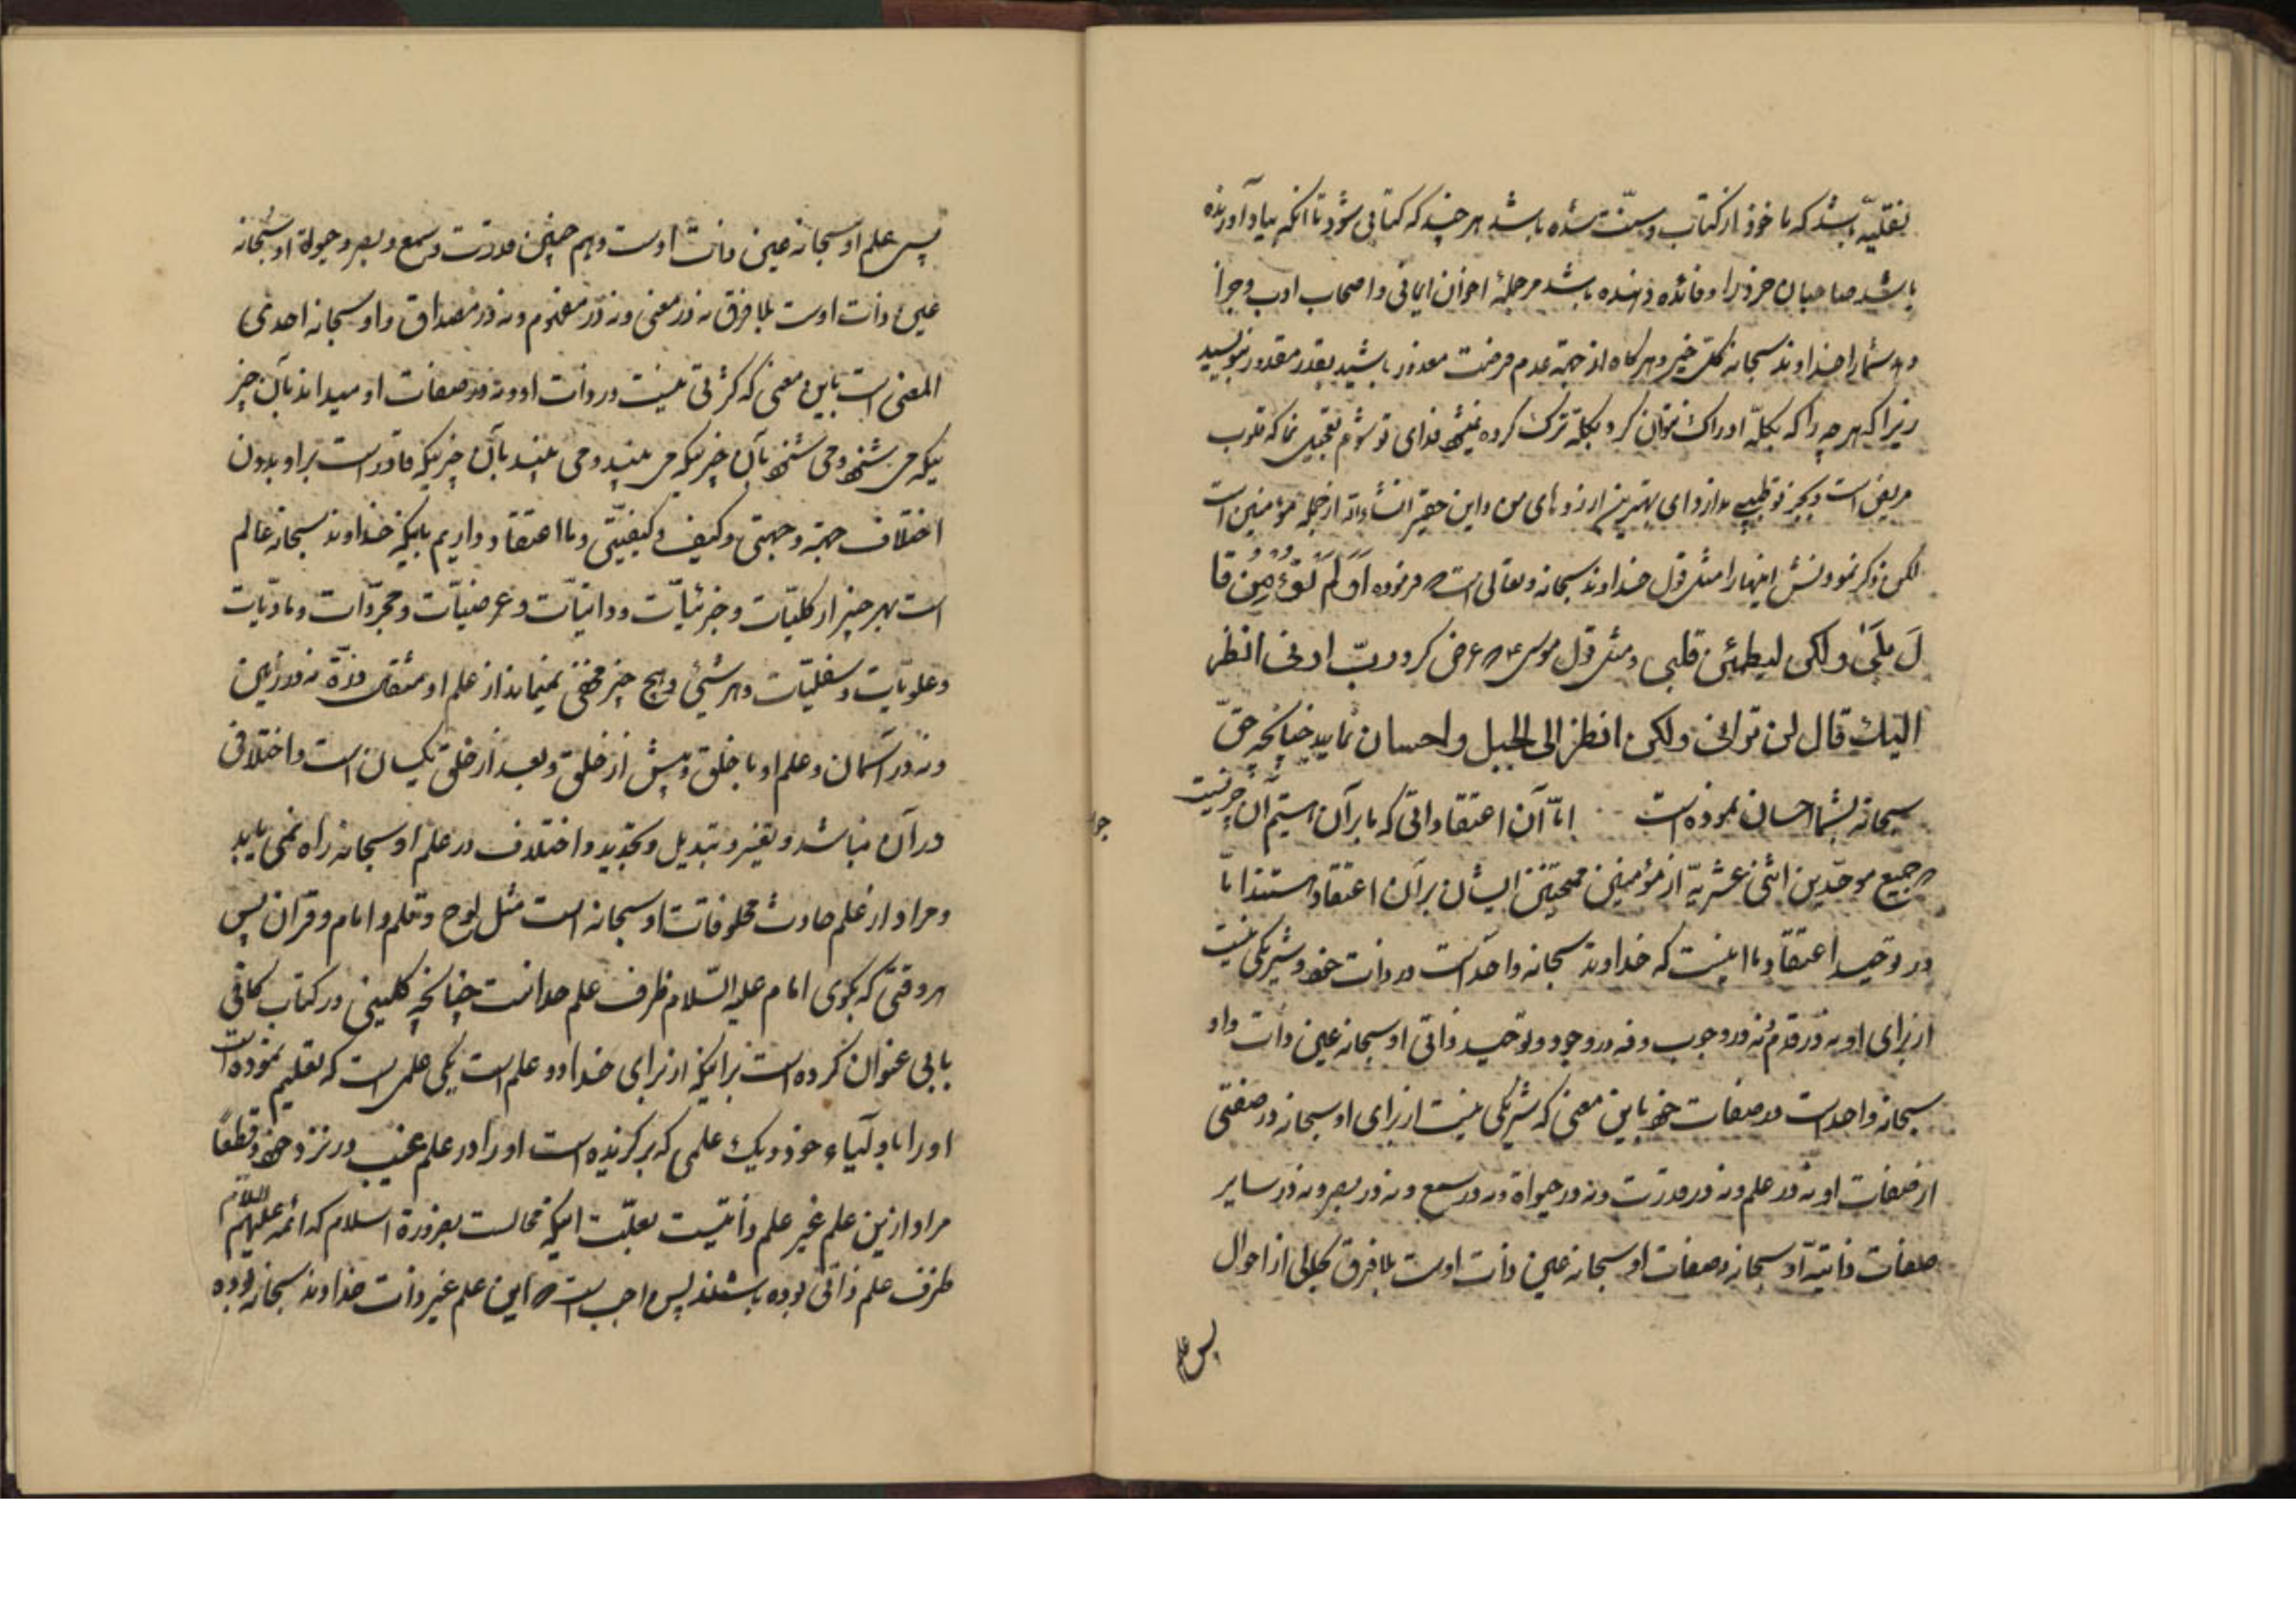 نقلیّه باشد که ماخوذ از کتاب و سنّت شده باشد هر چند که کتابی شود تا آنکه بیاد آورنده
باشد صاحبان خرد را و فائده دهنده باشد مر جملهٔ اخوان ایمانی و اصحاب ادب و جزا
دهد شما را خداوند سبحانه بکلّ خیر و هرگاه از جهة عدم فرصت معذور باشید بقدر مقدور بنویسید
زیرا که هر چه را که بکلّه ادراک نتوان کرد بکلّه ترک کرده نمیشود فدای تو شوم تعجیل نما که قلوب
مریض است و بجز تو طبیبی ندارد ای بهترین ارزوهای من و این حقیر انشاءالله از جمله مؤمنین است
لکن ذکر نمودنش اینها را مثل قول خداوند سبحانه و تعالی است که فرموده اَوَلَمْ تُؤْمِنْ قا
لَ بَلَیٰ ولکن لیطمئن قلبی و مثل قول موسی ع که عرض کرد ربّ ارنی انظر
الیک قال لن ترانی ولکن انظر الی الجبل و احسان نمایید چنانچه حقّ
سبحانه بشما احسان نموده است امّا آن اعتقاداتی که ما بر آن هستیم آن چیزیست
که جمیع موحّدین اثنی عشریّه از مؤمنین ممتحنین ایشان بر آن اعتقاد هستند امّا
در توحید اعتقاد ما اینست که خداوند سبحانه واحد است در ذات خود و شریکی نیست
از برای او نه در قدم و نه در وجوب و نه در وجود و توحید ذاتی او سبحانه عین ذات و او
سبحانه واحد است در صفات خود باین معنی که شریکی نیست از برای او سبحانه در صفتی
از صفات او نه در علم و نه در قدرت و نه در حیواة و نه در سمع و نه در بصر و نه در سایر
صفات ذاتیّه او سبحانه و صفات او سبحانه عین ذات اوست بلا فرق بحالی از احوال
پس علم
پس علم او سبحانه عین ذات اوست و هم چنین قدرت و سمع و بصر و حیوة او سبحانه
عین ذات اوست بلا فرق نه در معنی و نه در مفهوم و نه در مصداق و او سبحانه احدی
المعنی است باین معنی که کثرتی نیست در ذات او و نه در صفات او میداند بآن چیز
یکه می شنود و می شنود بآن چیزیکه می بیند و می بیند بآن چیزیکه قادر است بر او بدون
اختلاف جهة و جهتی و کیف و کیفیّتی و ما اعتقاد داریم باینکه خداوند سبحانه عالم
است بهر چیز از کلیّات و جزئیّات و ذاتیّات و عرضیّات و مجرّدات و مادیّات
و علویّات و سفلیّات و هر شیئ و هیچ چیز مخفی نمیماند از علم او مثقال ذرّة نه در زمین
و نه در آسمان و علم او با خلق و پیش از خلق و بعد از خلق یکسان است و اختلافی
در آن نباشد و تغیّر و تبدیل و تجدید و اختلاف در علم او سبحانه راه نمی یابد
و مراد از علم حادث مخلوقات او سبحانه است مثل لوح و قلم و امام و قران پس
هر وقتی که بگوی امام علیه السّلام ظرف علم خداست چنانچه کلینی در کتاب کافی
بابی عنوان کرده است براینکه از برای خدا دو علم است یکی علمی است که تعلیم نموده است
او را باولیاء خود و یک علمی که برگزیده است او را در علم غیب در نزد خود و قطعاً
مراد ازین علم غیر علم ذاتیست بعلّت اینکه محالست بضرورة اسلام که ائمه علیهم السّلام
ظرف علم ذاتی بوده باشند پس واجب است که این علم غیر ذات خداوند سبحانه بوده